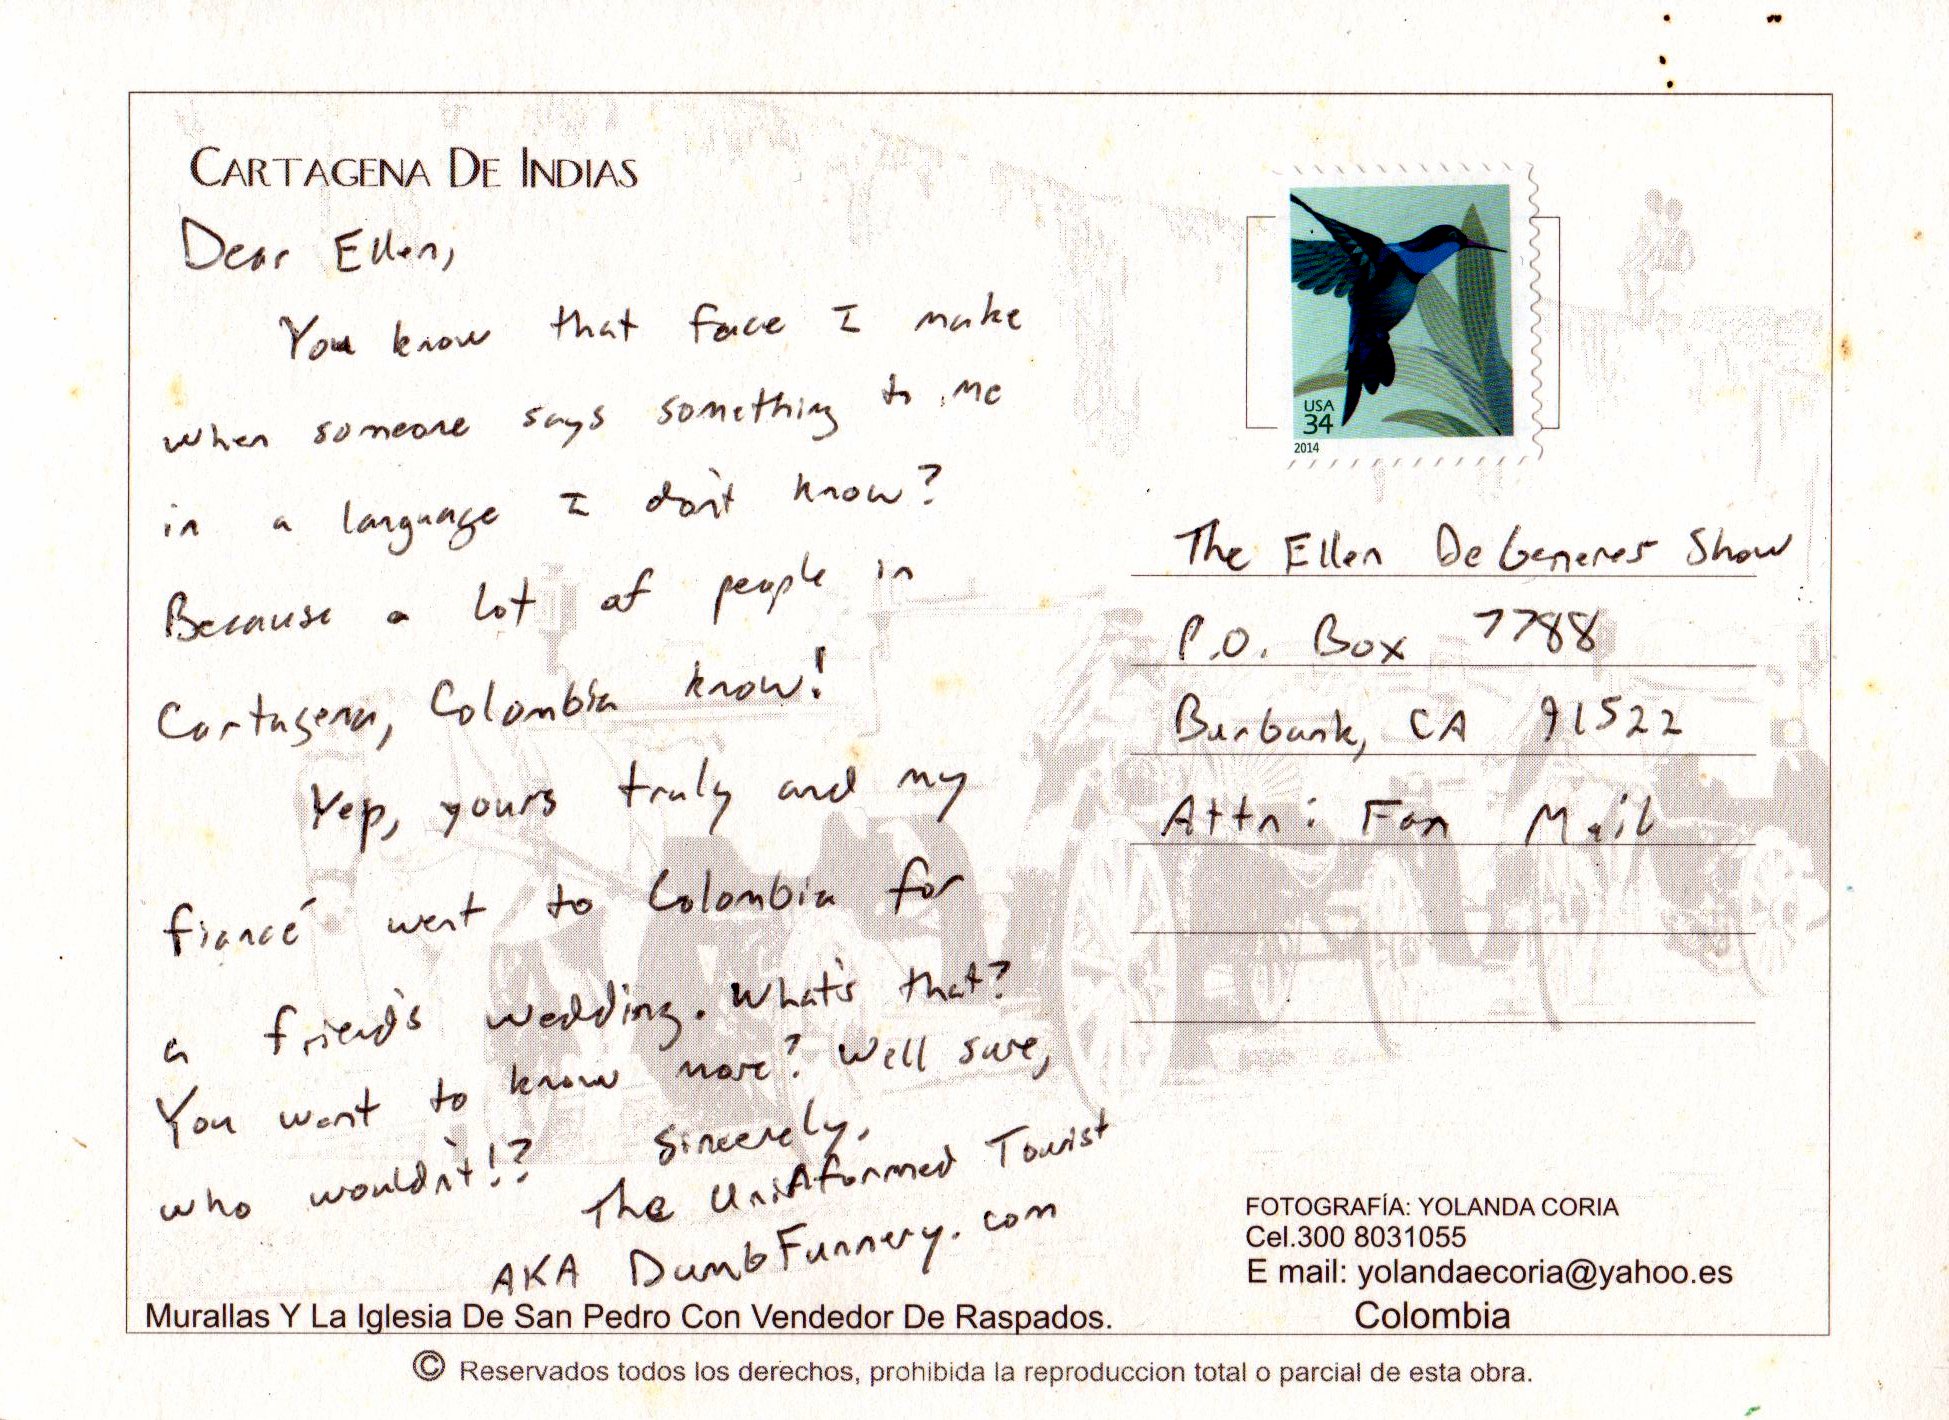 CARTAGENA DE INDIAS
Dear Ellen,
You know that face I make
when someone says something to me
in a language I don't know?
Because a lot of people in
Cartagena, Colombia know!
Yep, yours truly and my
fiancé went to Colombia for
a friend's wedding. What's that?
You want to know more? Well sure,
who wouldn't!?
Sincerely,
The Uninformed Tourist
AKA DumbFunnery.com
USA
34
2014
The Ellen DeGeneres Show
P.O. Box 7788
Burbank, CA 91522
Attn: Fan Mail
FOTOGRAFÍA: YOLANDA CORIA
Cel.300 8031055
E mail: yolandaecoria@yahoo.es
Colombia
Murallas Y La Iglesia De San Pedro Con Vendedor De Raspados.
© Reservados todos los derechos, prohibida la reproduccion total o parcial de esta obra.